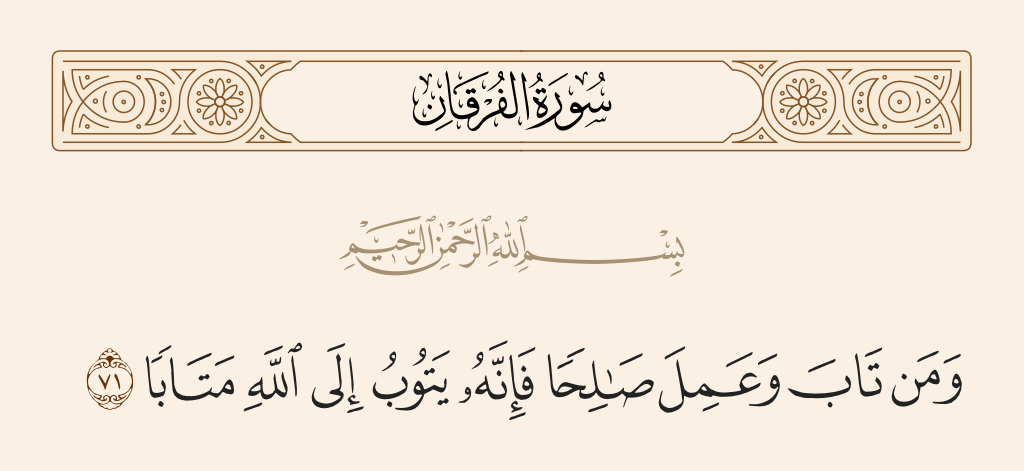 سُورَةُ الفُرْقَانِ
بِسْمِ ٱللَّهِ ٱلرَّحْمَٰنِ ٱلرَّحِيمِ
وَمَن تَابَ وَعَمِلَ صَـٰلِحًا فَإِنَّهُۥ يَتُوبُ إِلَى ٱللَّهِ مَتَابًا ٧١